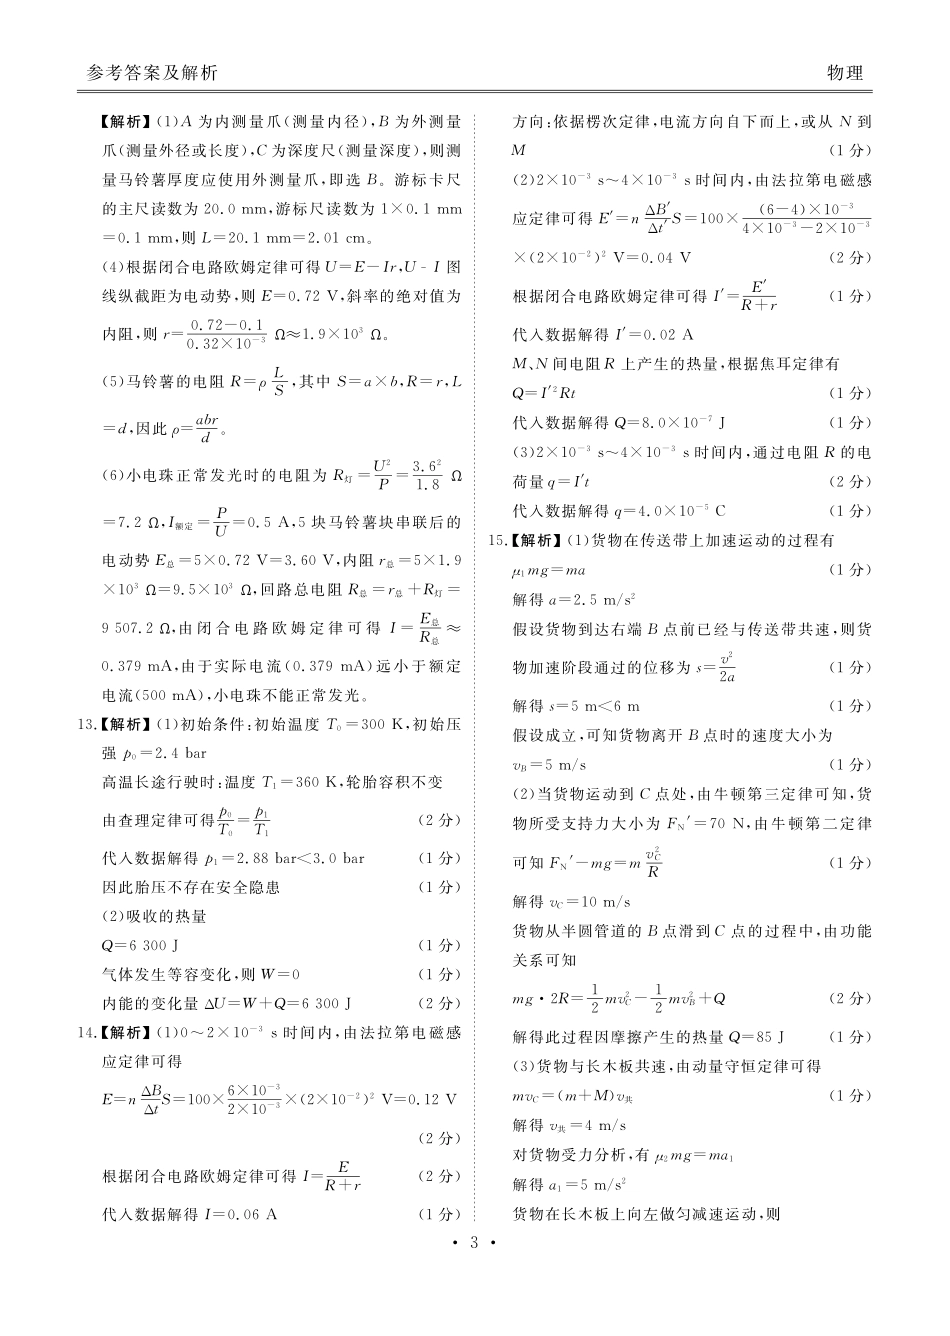 参考答案及解析
物理
【解析】(1)A 为内测量爪(测量内径),B 为外测量
爪(测量外径或长度),C 为深度尺(测量深度),则测
量马铃薯厚度应使用外测量爪,即选 B。游标卡尺
的主尺读数为 20.0 mm,游标尺读数为 1×0.1 mm
=0.1 mm,则 L=20.1 mm=2.01 cm。
(4)根据闭合电路欧姆定律可得 U=E-Ir,U-I 图
线纵截距为电动势,则 E=0.72 V,斜率的绝对值为
内阻,则 r=\frac{0.72-0.1}{0.32×10^{-3}} Ω≈1.9×10³ Ω。
(5)马铃薯的电阻 R=ρ\frac{L}{S},其中 S=a×b,R=r,L
=d,因此 ρ=\frac{abr}{d}。
(6)小电珠正常发光时的电阻为 R灯=\frac{U²}{P}=\frac{3.6²}{1.8} Ω
=7.2 Ω,I额定=\frac{P}{U}=0.5 A,5 块马铃薯块串联后的
电动势 E总=5×0.72 V=3.60 V,内阻 r总=5×1.9
×10³ Ω=9.5×10³ Ω,回路总电阻 R总=r总+R灯=
9 507.2 Ω,由闭合电路欧姆定律可得 I=\frac{E总}{R总}≈
0.379 mA,由于实际电流(0.379 mA)远小于额定
电流(500 mA),小电珠不能正常发光。
13.【解析】(1)初始条件:初始温度 T₀=300 K,初始压
强 p₀=2.4 bar
高温长途行驶时:温度 T₁=360 K,轮胎容积不变
由查理定律可得\frac{p₀}{T₀}=\frac{p₁}{T₁} (2 分)
代入数据解得 p₁=2.88 bar<3.0 bar (1 分)
因此胎压不存在安全隐患 (1 分)
(2)吸收的热量
Q=6 300 J (1 分)
气体发生等容变化,则 W=0 (1 分)
内能的变化量 ΔU=W+Q=6 300 J (2 分)
14.【解析】(1)0~2×10⁻³ s 时间内,由法拉第电磁感
应定律可得
E=n\frac{ΔB}{Δt}S=100×\frac{6×10^{-3}}{2×10^{-3}}×(2×10⁻²)² V=0.12 V
(2 分)
根据闭合电路欧姆定律可得 I=\frac{E}{R+r} (2 分)
代入数据解得 I=0.06 A (1 分)
方向:依据楞次定律,电流方向自下而上,或从 N 到
M (1 分)
(2)2×10⁻³ s~4×10⁻³ s 时间内,由法拉第电磁感
应定律可得 E′=n\frac{ΔB′}{Δt′}S=100×\frac{(6-4)×10^{-3}}{4×10^{-3}-2×10^{-3}}
×(2×10⁻²)² V=0.04 V (2 分)
根据闭合电路欧姆定律可得 I′=\frac{E′}{R+r} (1 分)
代入数据解得 I′=0.02 A
M、N 间电阻 R 上产生的热量,根据焦耳定律有
Q=I′²Rt (1 分)
代入数据解得 Q=8.0×10⁻⁷ J (1 分)
(3)2×10⁻³ s~4×10⁻³ s 时间内,通过电阻 R 的电
荷量 q=I′t (2 分)
代入数据解得 q=4.0×10⁻⁵ C (1 分)
15.【解析】(1)货物在传送带上加速运动的过程有
μ₁mg=ma (1 分)
解得 a=2.5 m/s²
假设货物到达右端 B 点前已经与传送带共速,则货
物加速阶段通过的位移为 s=\frac{v²}{2a} (1 分)
解得 s=5 m<6 m (1 分)
假设成立,可知货物离开 B 点时的速度大小为
v_B=5 m/s (1 分)
(2)当货物运动到 C 点处,由牛顿第三定律可知,货
物所受支持力大小为 F_N′=70 N,由牛顿第二定律
可知 F_N′-mg=m\frac{v_C²}{R} (1 分)
解得 v_C=10 m/s
货物从半圆管道的 B 点滑到 C 点的过程中,由功能
关系可知
mg·2R=\frac{1}{2}mv_C²-\frac{1}{2}mv_B²+Q (2 分)
解得此过程因摩擦产生的热量 Q=85 J (1 分)
(3)货物与长木板共速,由动量守恒定律可得
mv_C=(m+M)v共 (1 分)
解得 v共=4 m/s
对货物受力分析,有 μ₂mg=ma₁
解得 a₁=5 m/s²
货物在长木板上向左做匀减速运动,则
· 3 ·